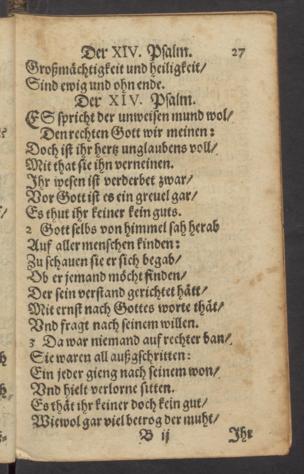 Der XIV. Psalm. 27
Großmächtigkeit und heiligkeit/
Sind ewig und ohn ende.
Der XIV. Psalm.
ES spricht der unweisen mund wol/
Den rechten Gott wir meinen:
Doch ist ihr hertz unglaubens voll/
Mit that sie ihn verneinen.
Ihr wesen ist verderbet zwar/
Vor Gott ist es ein greuel gar/
Es thut ihr keiner kein guts.
2 Gott selbs von himmel sah herab
Auf aller menschen kinden:
Zu schauen sie er sich begab/
Ob er jemand möcht finden/
Der sein verstand gerichtet hätt/
Mit ernst nach Gottes worte thät/
Vnd fragt nach seinem willen.
3 Da war niemand auf rechter ban/
Sie waren all außgschritten:
Ein jeder gieng nach seinem won/
Vnd hielt verlorne sitten.
Es thät ihr keiner doch kein gut/
Wiewol gar viel betrog der muht/
B ij Ihr